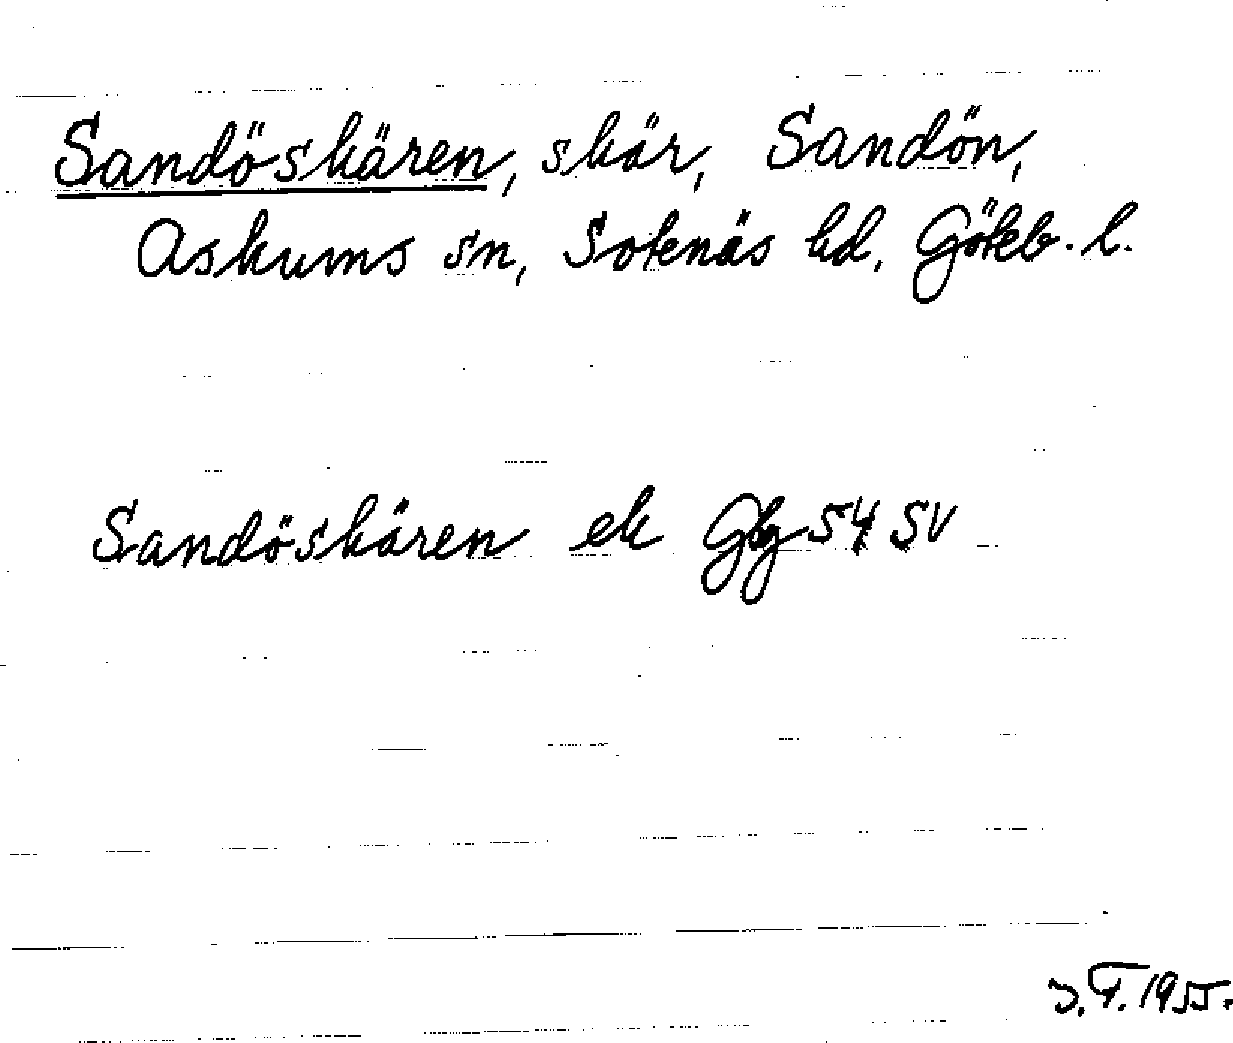 Sandöskären, skär, Sandön,
Askums sn, Sotenäs hd, Göteb. l.
Sandöskären ek Gbg 54 SV
1955.